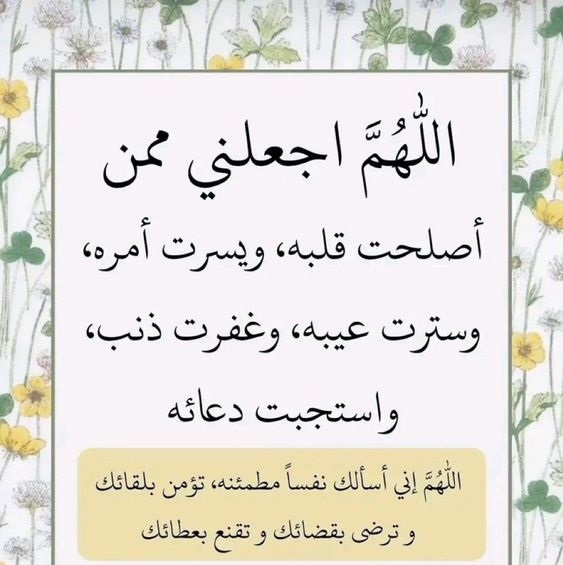 اللّٰهُمَّ اجعلني ممن
أصلحت قلبه، ويسرت أمره،
وسترت عيبه، وغفرت ذنب،
واستجبت دعائه
اللّٰهُمَّ إني أسألك نفساً مطمئنه، تؤمن بلقائك
و ترضى بقضائك و تقنع بعطائك